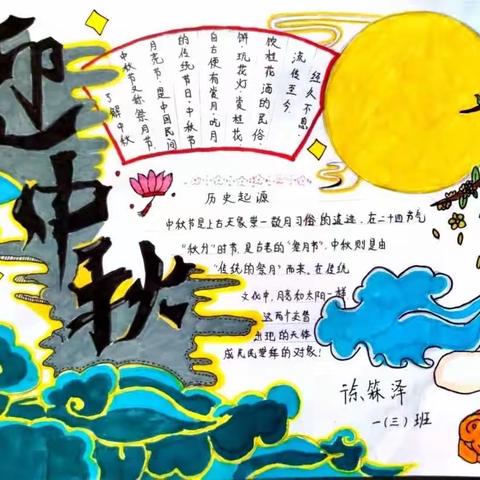 迎中秋
了解中秋
中秋节又称祭月节、
月亮节,是中国民间
的传统节日,中秋节
自古便有赏月、吃月
饼、玩花灯、赏桂花、
饮桂花酒的民俗,
流传至今,
经久不息。
历史起源
中秋节是上古天象崇拜—敬月习俗的遗迹。在二十四节气
“秋分”时节,是古老的“祭月节”,中秋则是由
“传统的祭月”而来。在传统
文化中,月亮和太阳一样
这两个交替
出现的天体
成先民崇拜的对象!
徐 泽
一(三)班